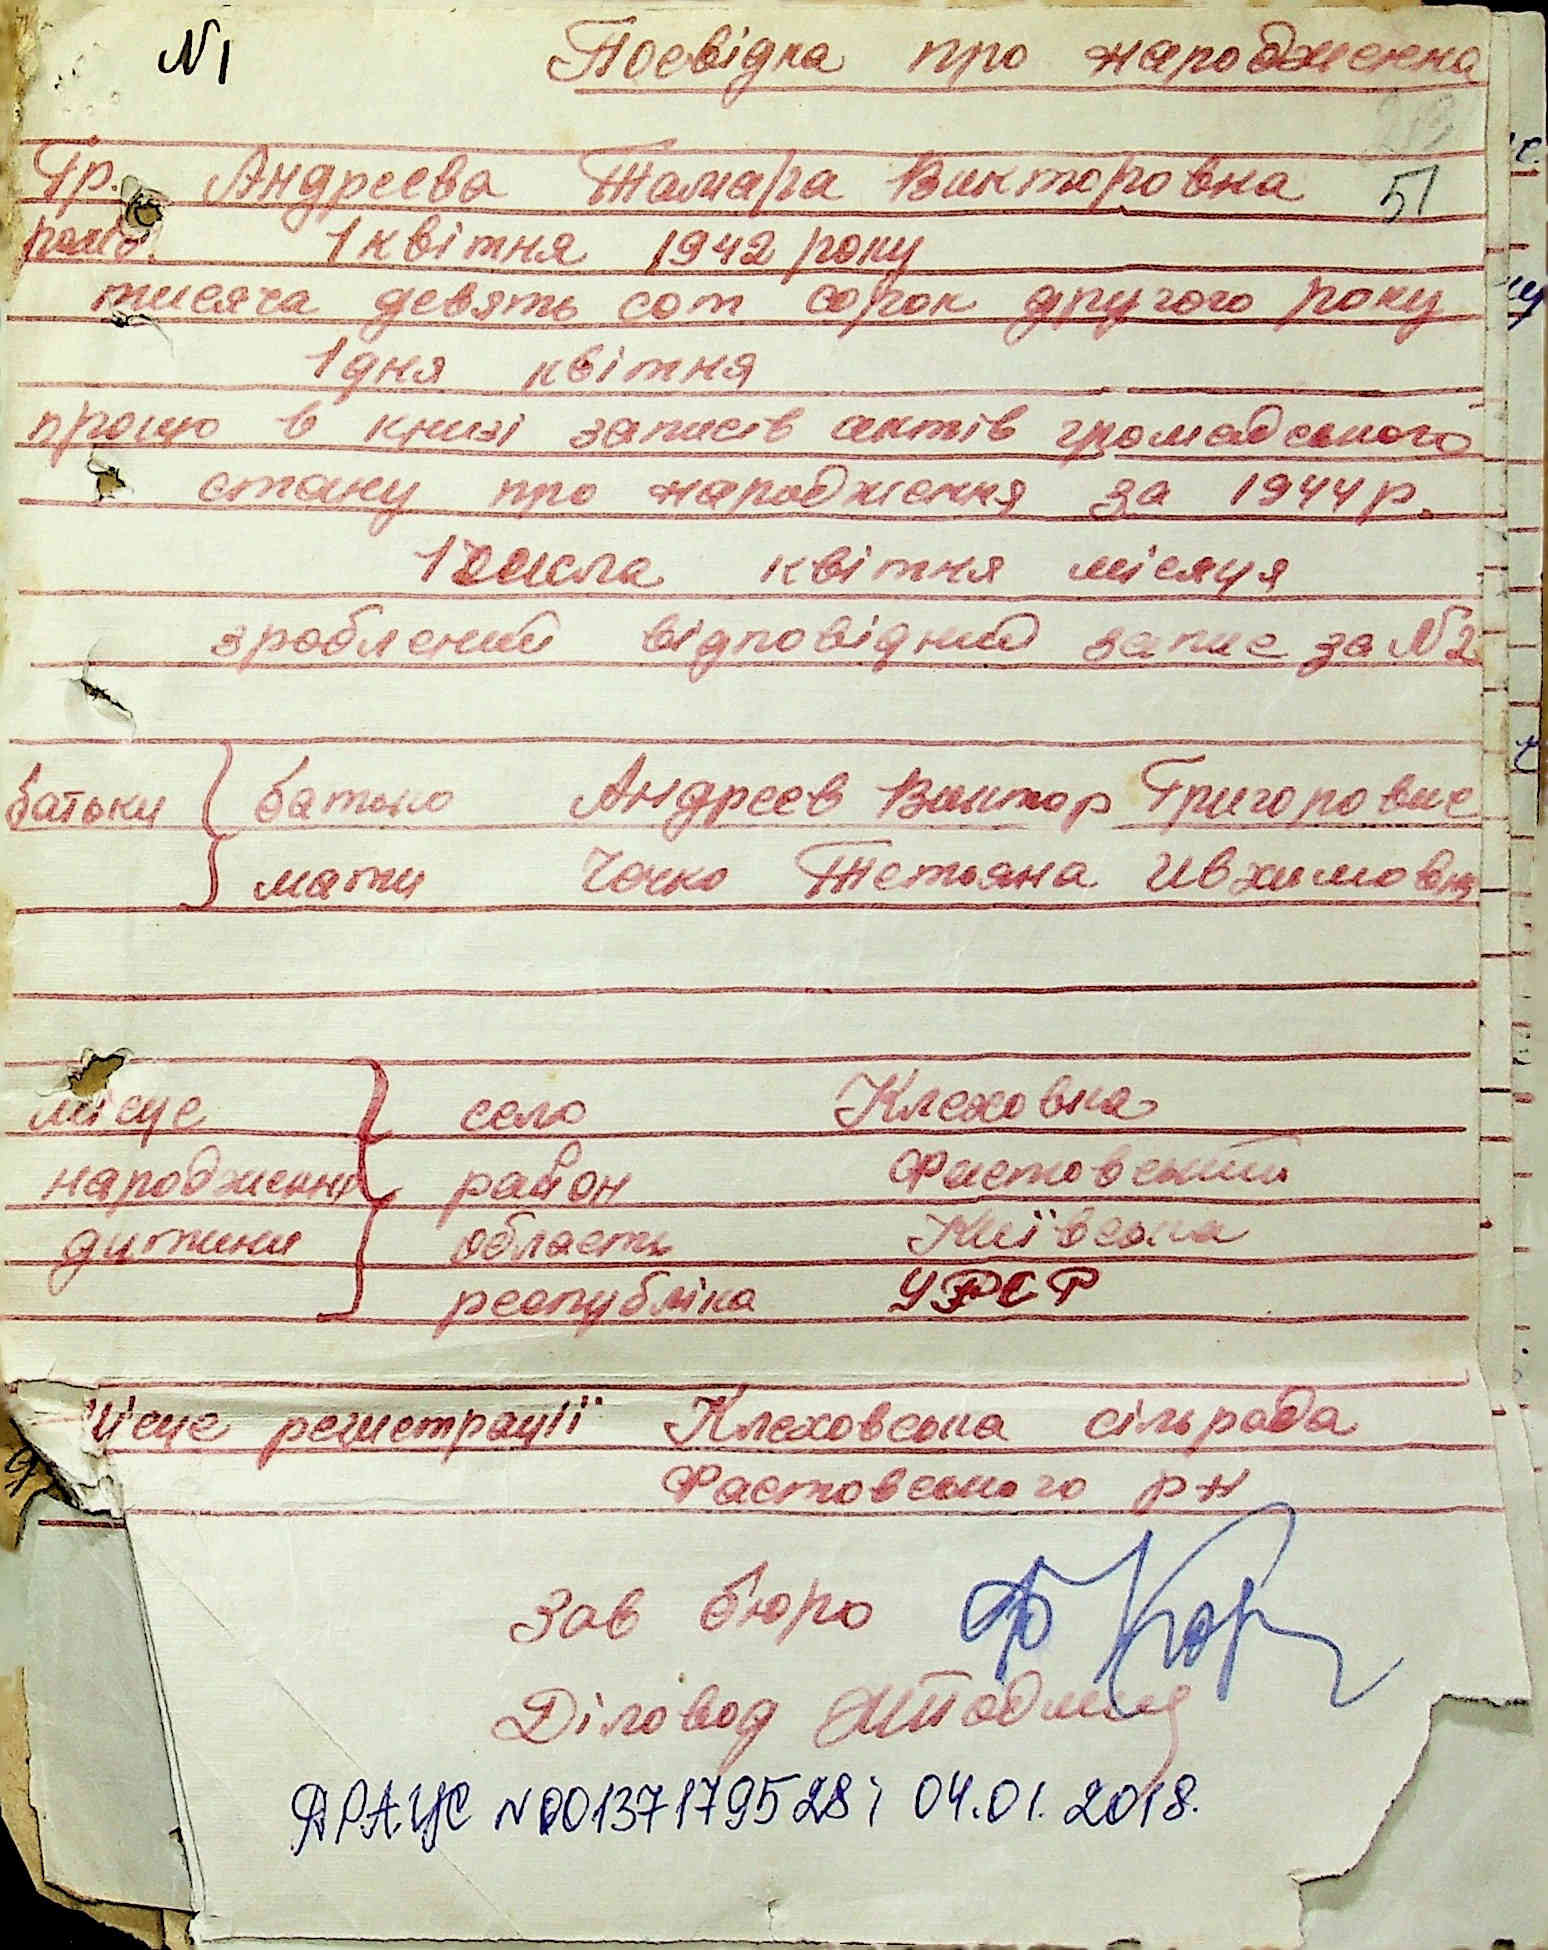 №1
Посвідка про народження
Гр. Андреева Тамара Викторовна
51
рожд. 1 квітня 1942 року
тисяча девять сот сорок другого року
1 дня квітня
прощо в книзі записів актів громадського
стану про народження за 1944 р.
1 числа квітня місяця
зроблений відповідний запис за №2
батьки
батько Андреев Виктор Григорович
мати Чочко Тетьяна Ивхимовна
місце народження дитини
село Клеховка
район Фастовський
область Київська
республіка УРСР
Місце регистрації Клеховська сільрада
Фастовського р н
Зав бюро
Діловод
ДРАЦС №00137179528; 04.01.2018.